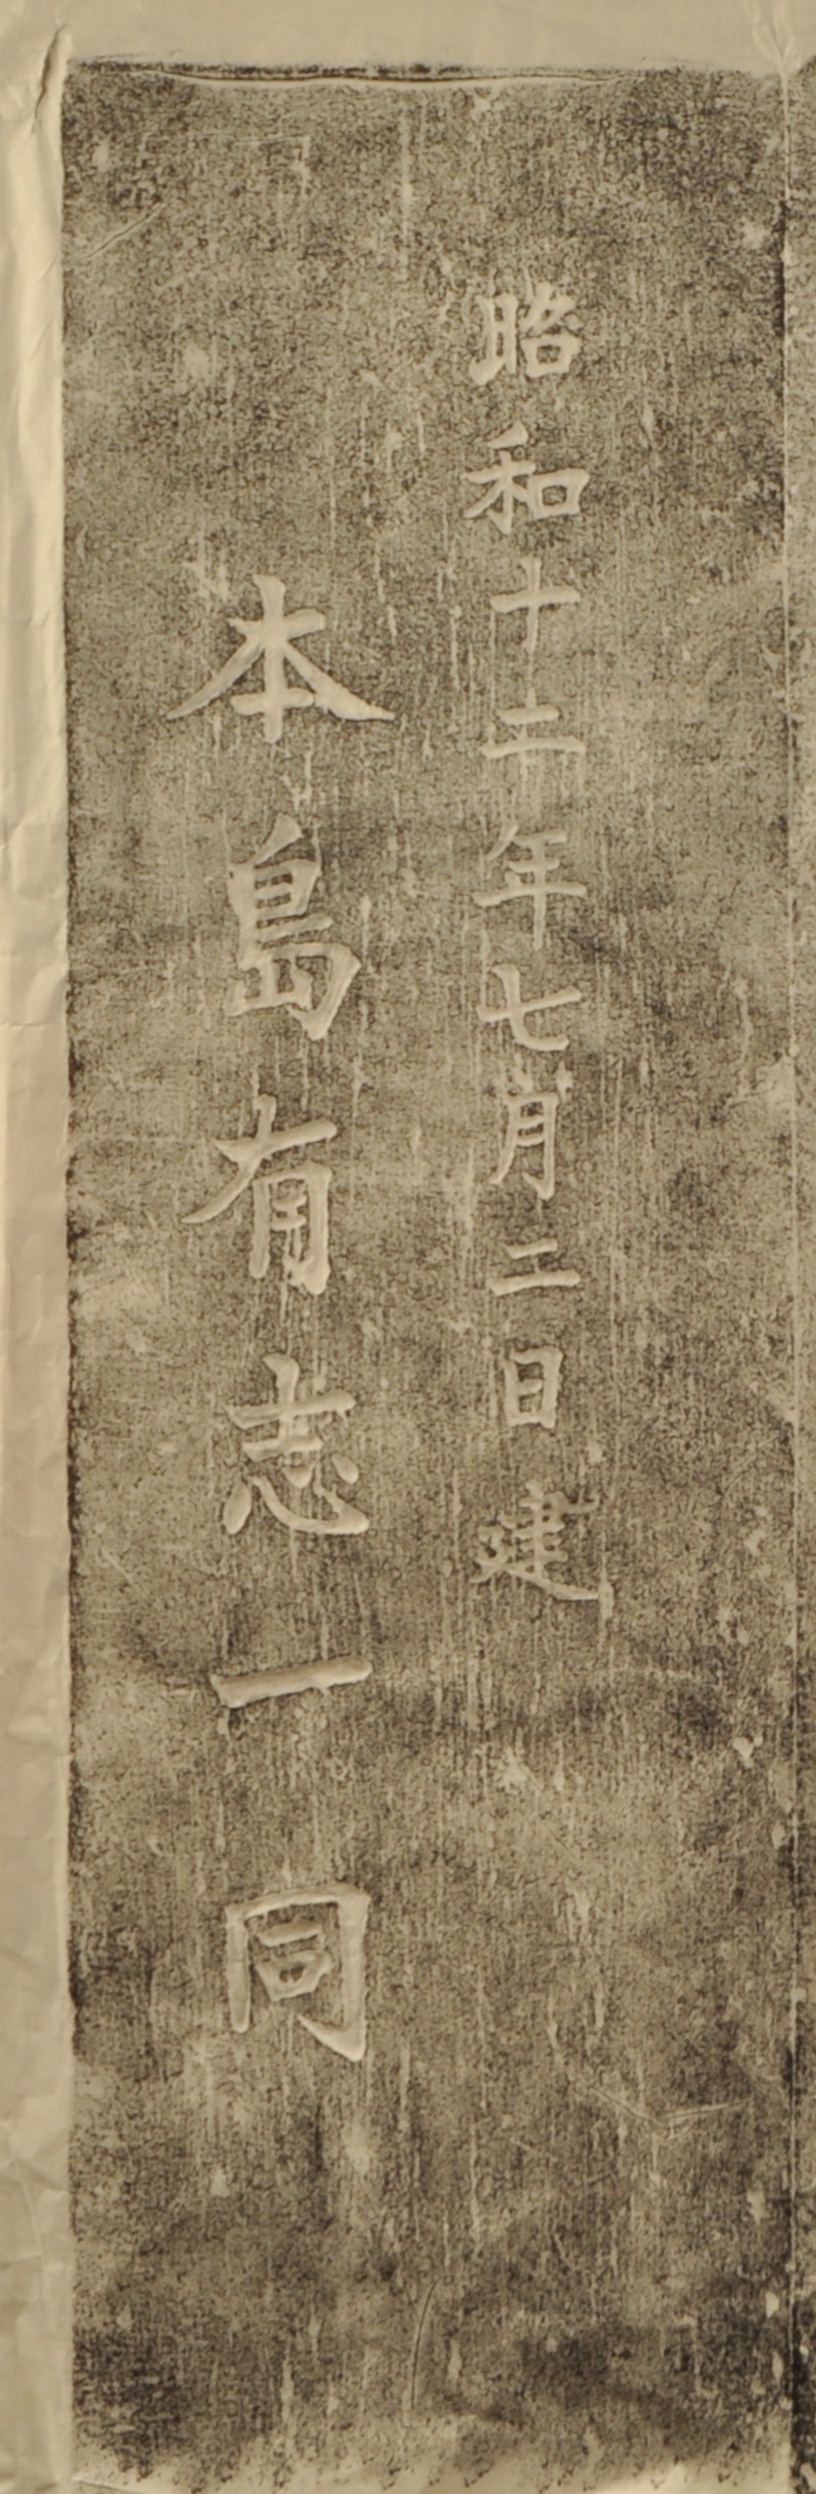 昭和十二年七月二日建
本島有志一同